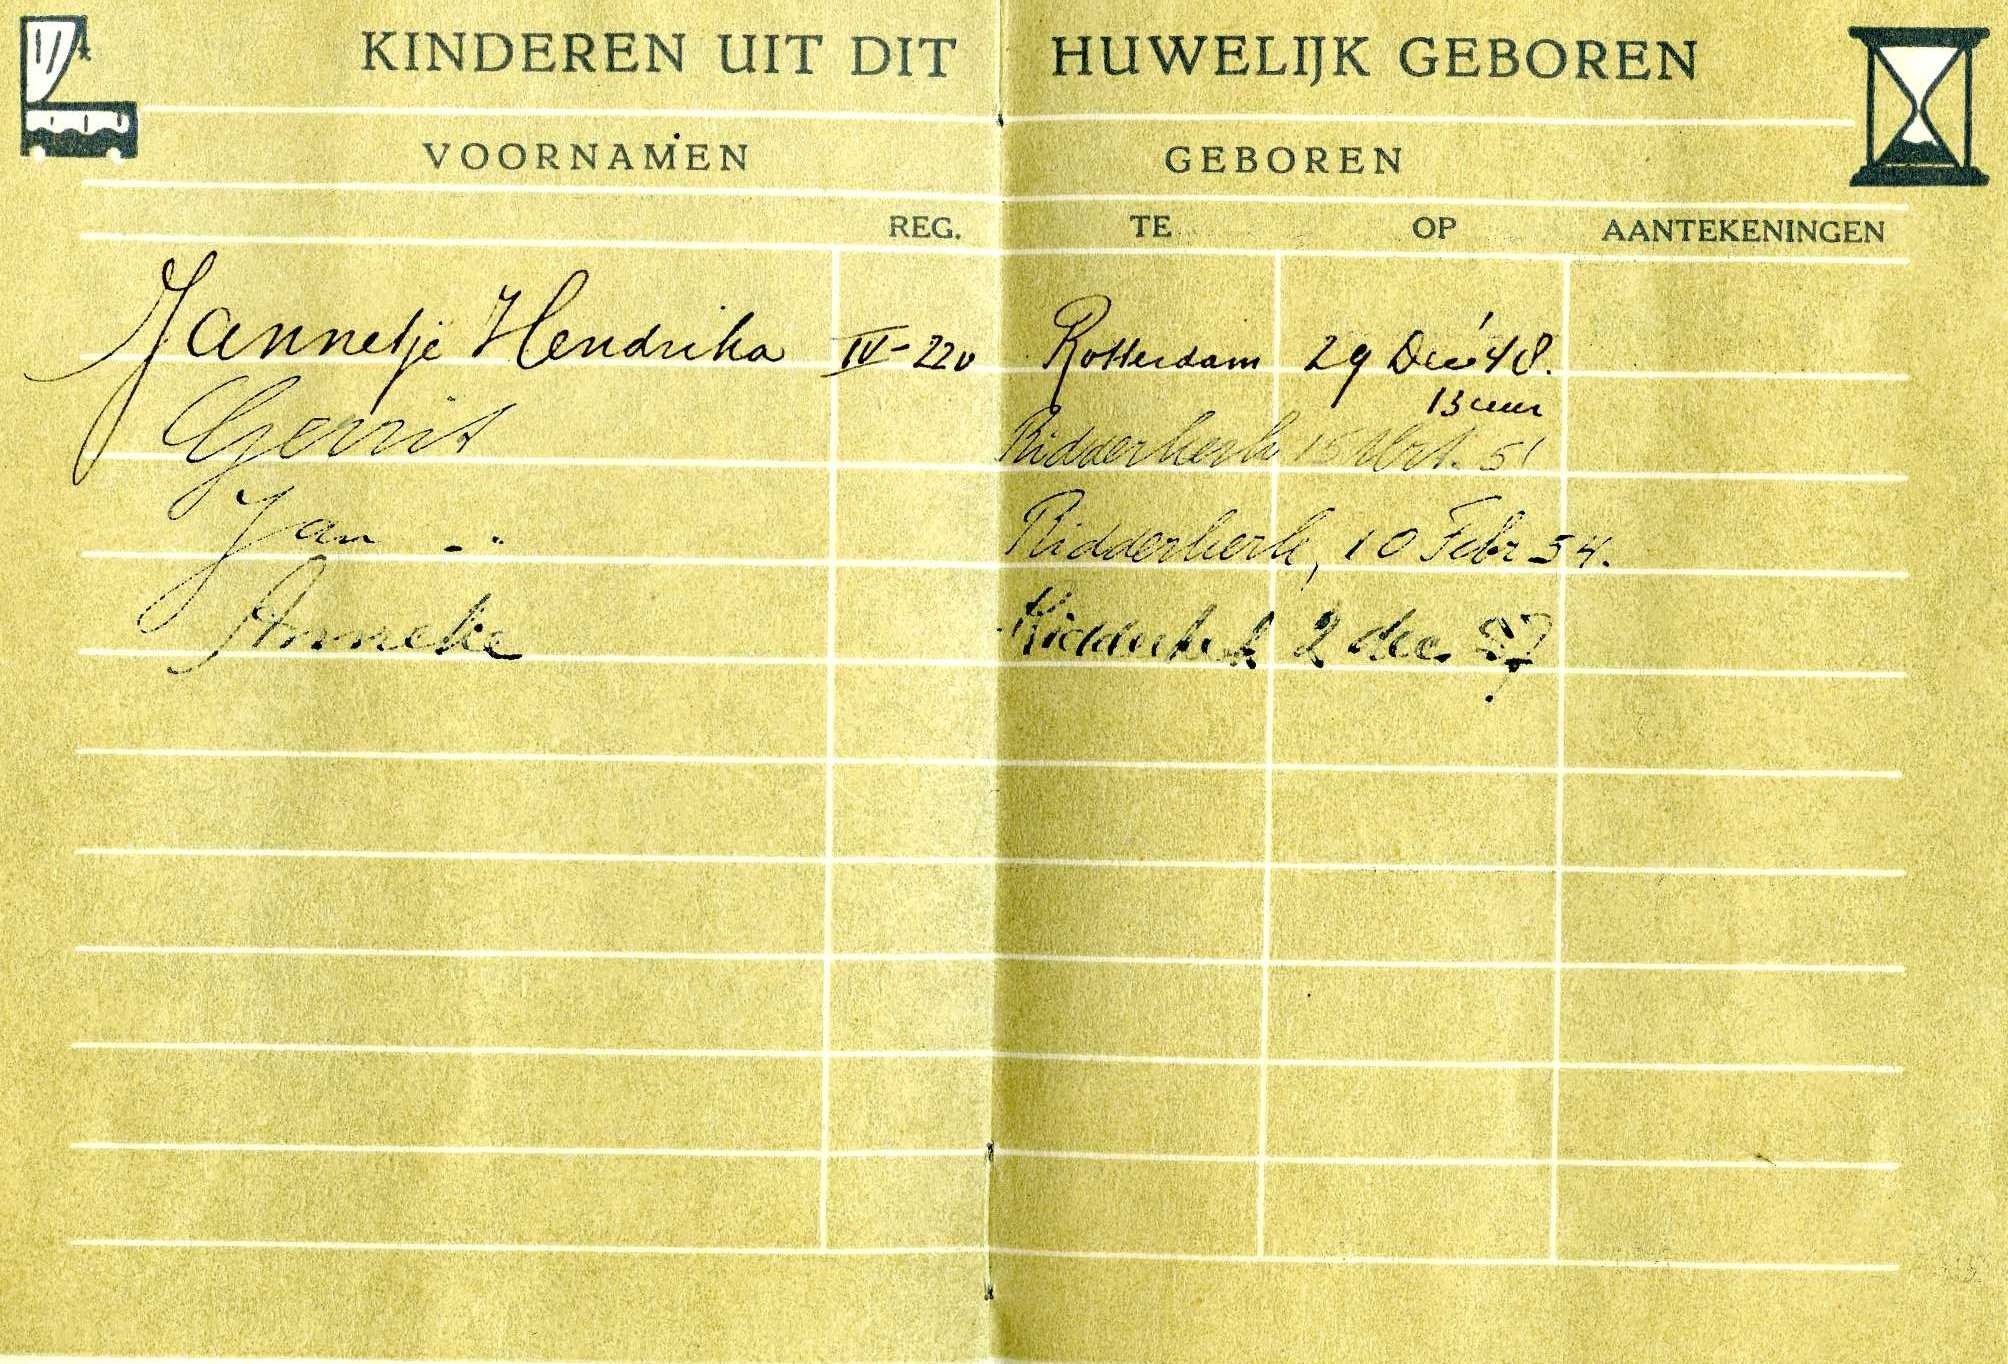 KINDEREN UIT DIT HUWELIJK GEBOREN
VOORNAMEN GEBOREN
REG. TE OP AANTEKENINGEN
Jannetje Hendrika IV-220 Rotterdam 29 Dec '48.
13 uur
Gerrit Ridderkerk 15 51
Jan Ridderkerk, 10 Febr 54.
Anneke Ridderkerk 2 dec.